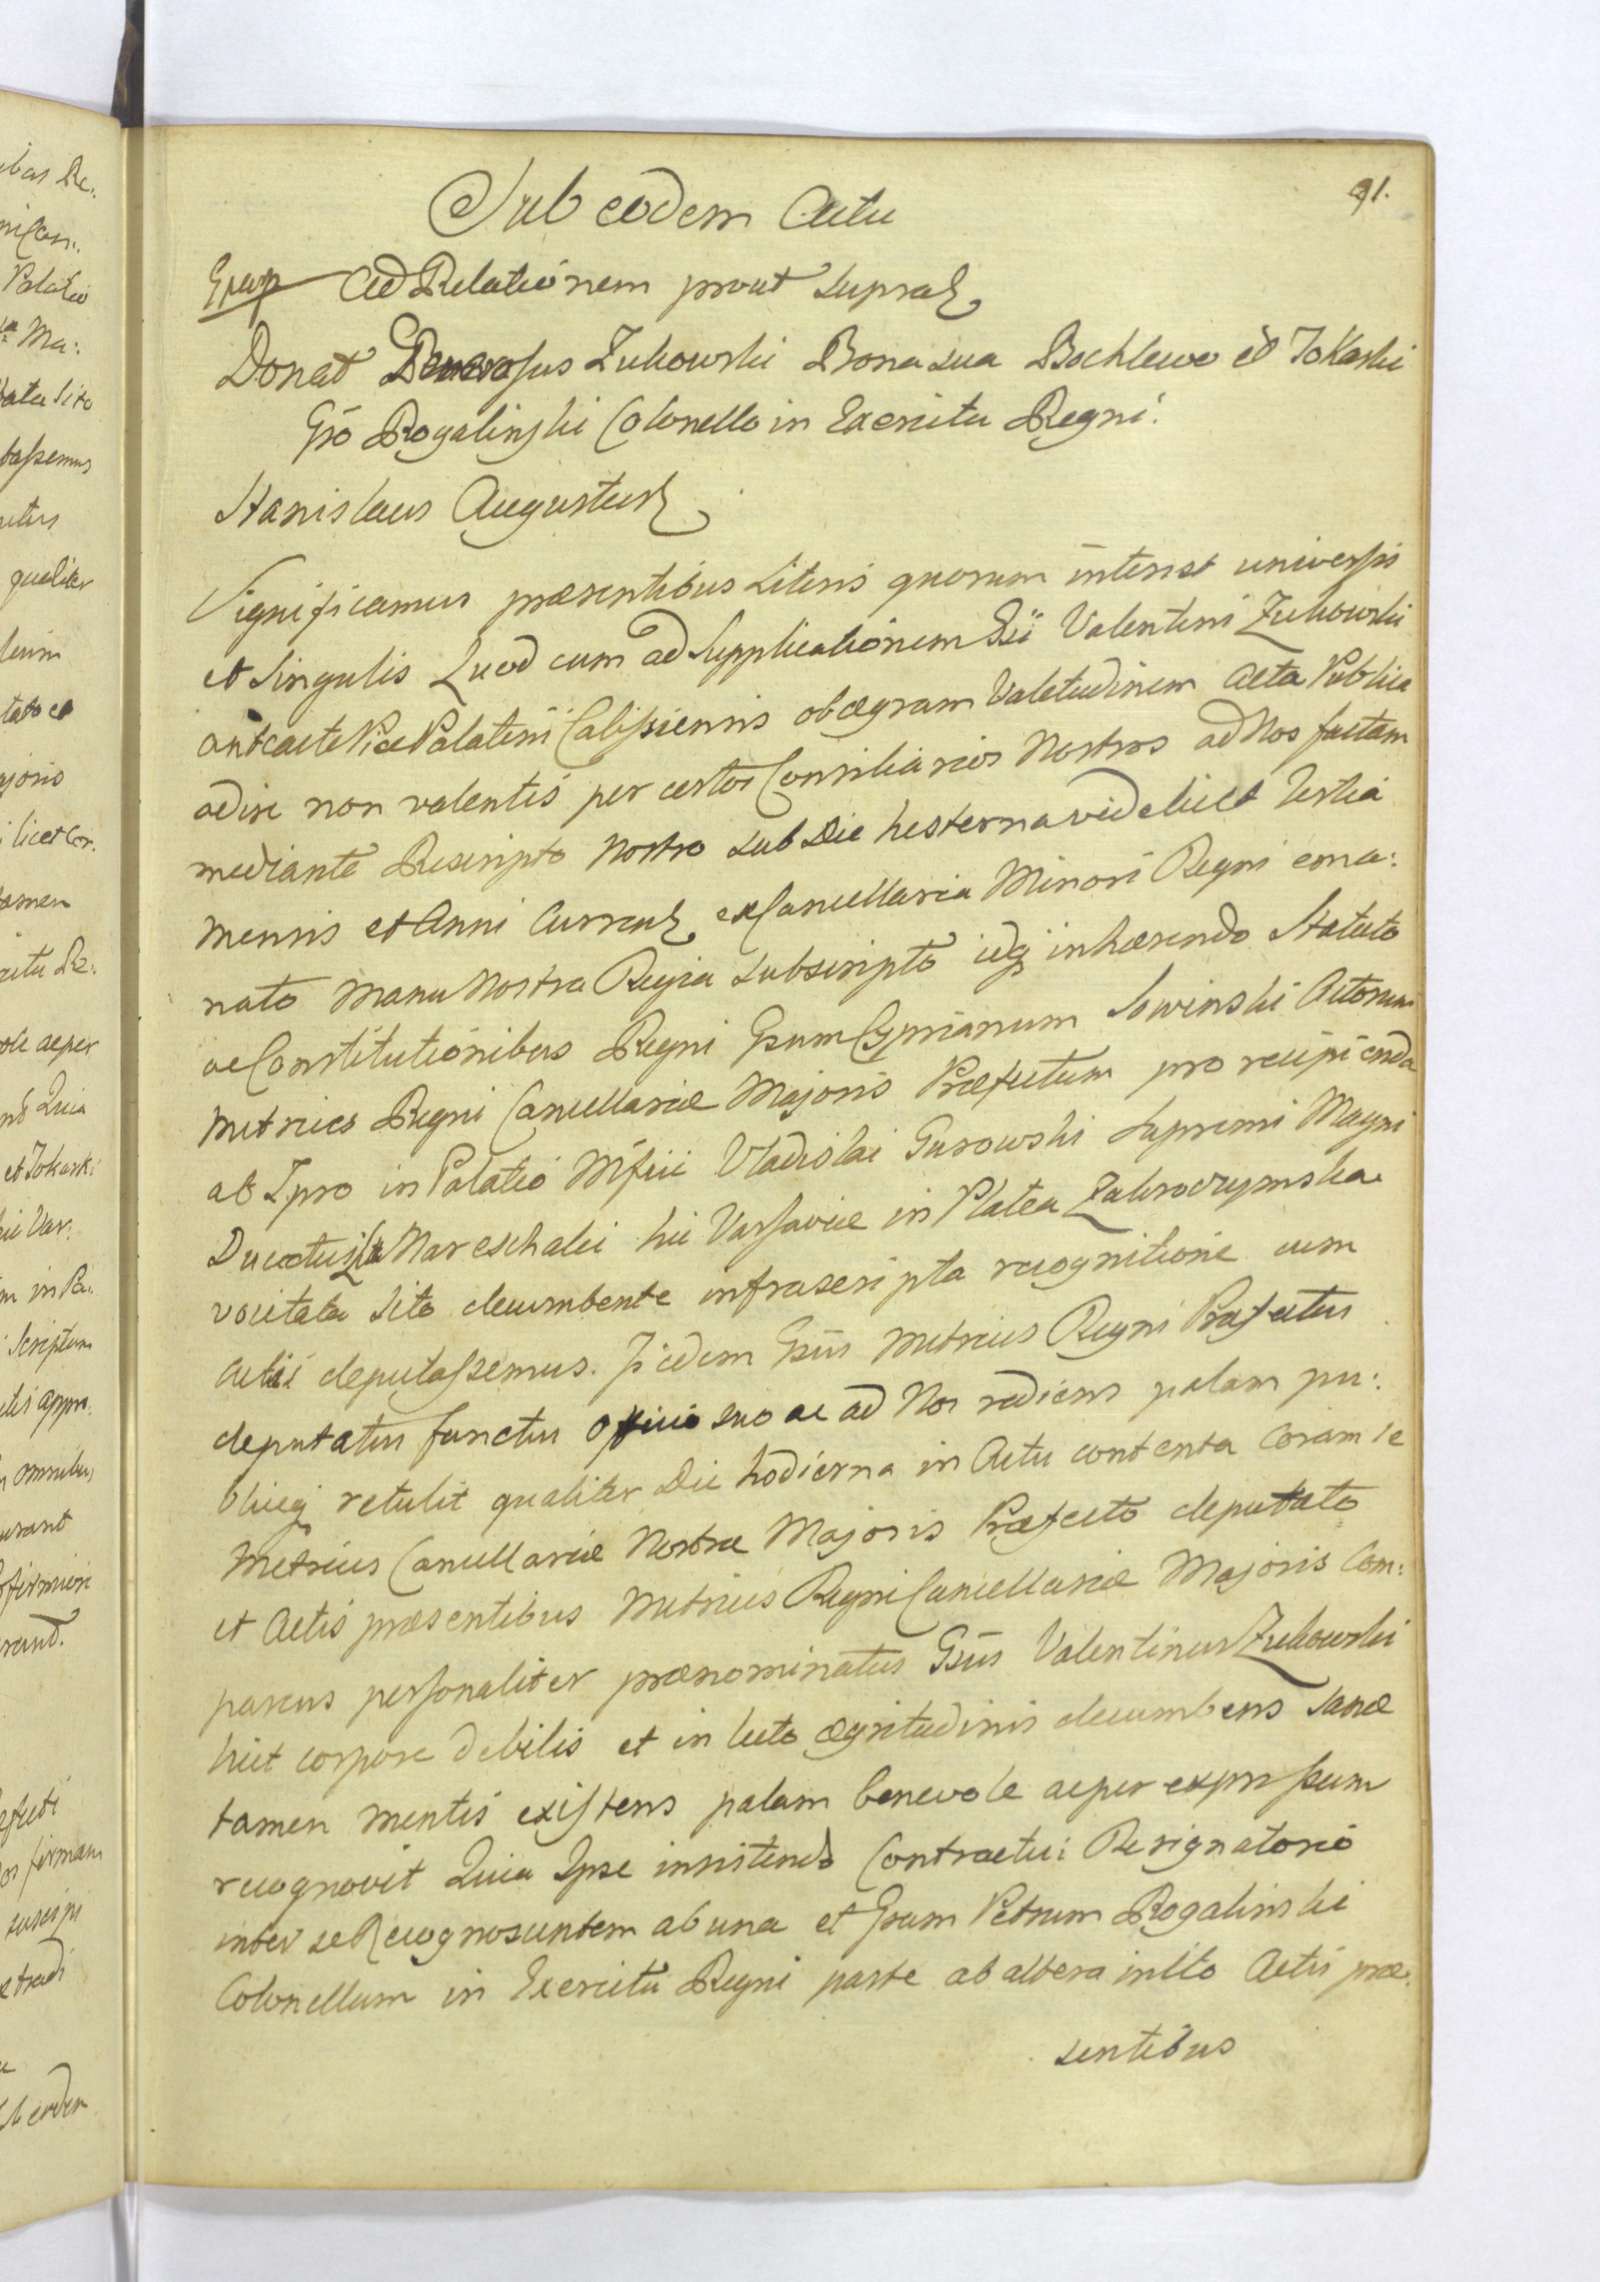 91.
Sub eodem Actu
Ad Relationem prout supra
Donat Generosus Zukowski Bona sua Bochlewo et Tokarki
Gsō Rogalinski Colonello in Exercitu Regni.
Stanislaus Augustus
Significamus præsentibus Literis quorum interest universis
et singulis Quod cum ad Supplicationem Gsī Valentini Zukowski
antcacte Vice Palatini Calissiensis ob ægram Valetudinem Acta Publica
adire non valentis per certos Consiliarios Nostros ad Nos factam
mediante Rescripto Nostro sub Die hesterna videlicet Tertia
mensis et Anni Curren ex Cancellaria Minori Regni ema:
nato manu Nostra Regia subscripto idq inhærendo Statuto
ac Constitutionibus Regni Gsum Cyprianum Sowinski Actorum
Metrices Regni Cancellariæ Majoris Præfectum pro recipienda
ab Ipso in Palatio Mfici Vladislai Gurowski Supremi Magni
Ducatus Lit Mareschalci hic Varsaviæ in Platea Zakroczymska
vocitata sito decumbente infrascripta recognitione cum
Actis deputassemus. Is idem Gsūs Metrices Regni Præfectus
deputatus functus officio suo ac ad Nos rediens palam pu:
bliceq retulit qualiter Die hodierna in Actu contenta Coram se
Metrices Cancellariæ Nostræ Majoris Præfecto deputato
et Actis præsentibus Metrices Regni Cancellariæ Majoris Com:
parens personaliter prænominatus Gsūs Valentinus Zukowski
licet corpore debilis et in lecto ægritudinis decumbens sanæ
tamen mentis existens palam benevole ac per expressum
recognovit Quia Ipse insistendo Contractui Resignatorio
inter se Recognoscentem ab una et Gsum Petrum Rogalinski
Colonellum in Exercitu Regni parte ab altera inito Actis præ:
sentibus